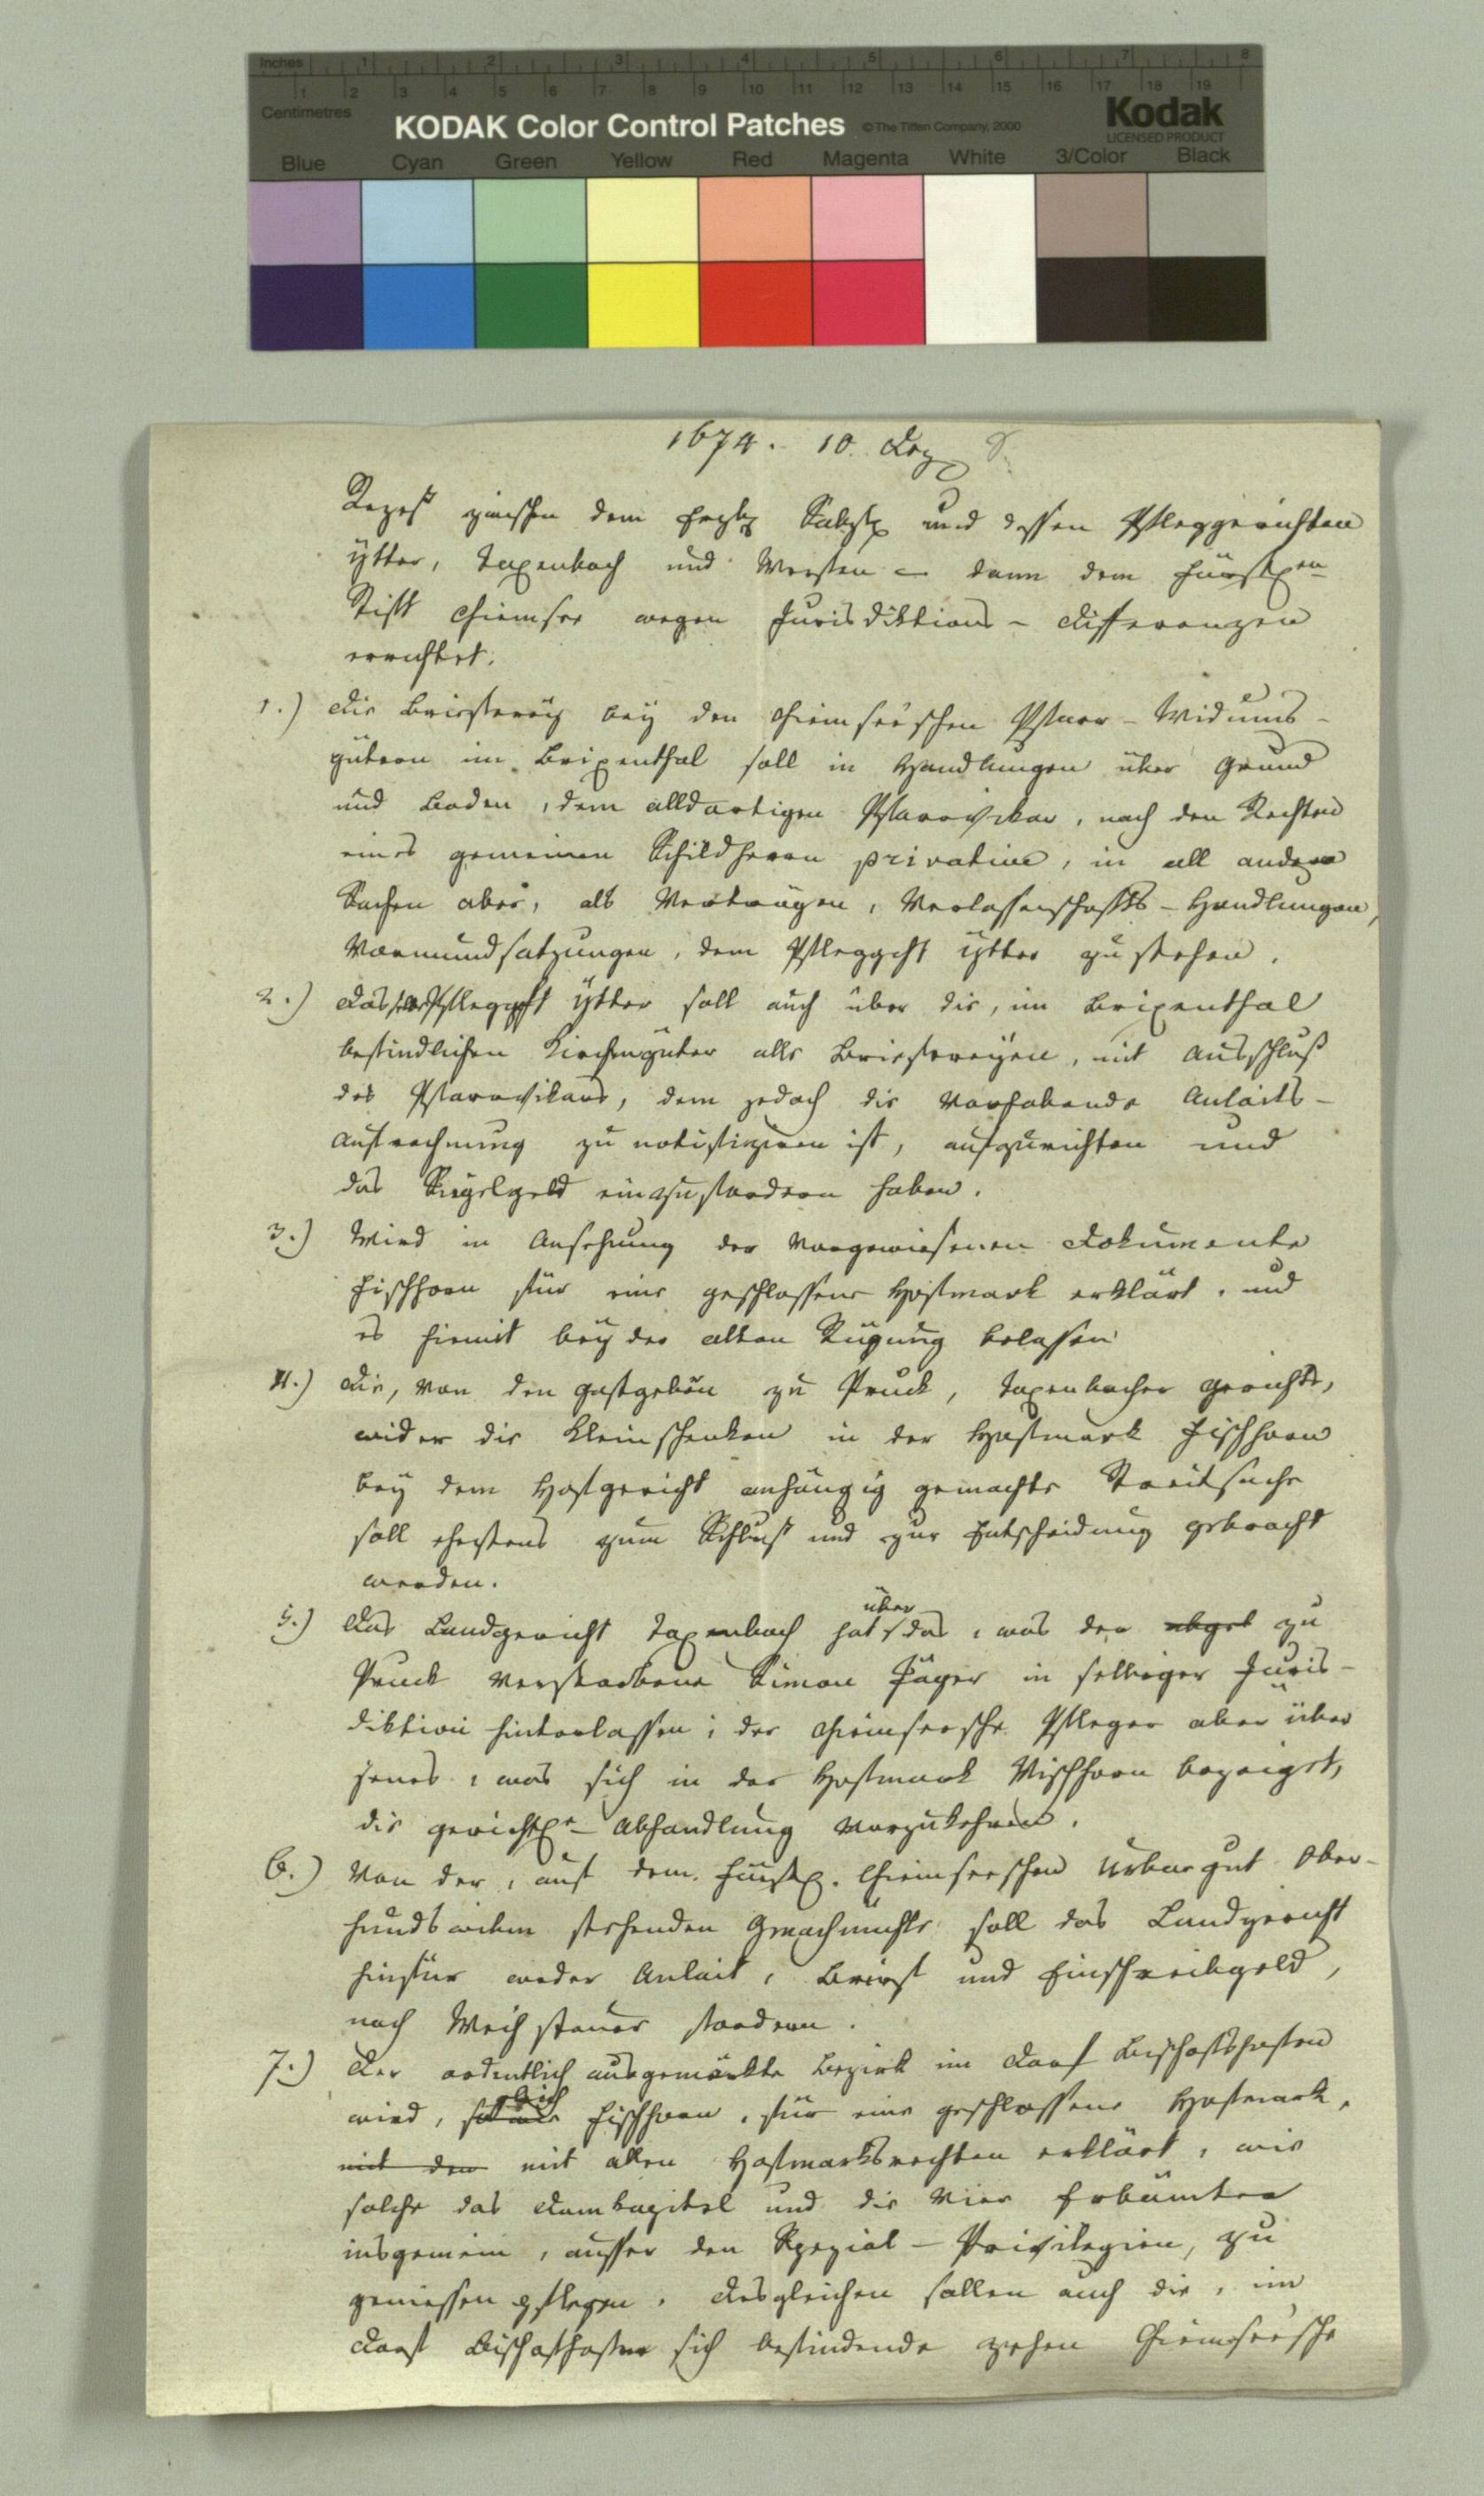 Inches 1 2 3 4 5 6 7 8
Centimetres 1 2 3 4 5 6 7 8 9 10 11 12 13 14 15 16 17 18 19
KODAK Color Control Patches © The Tiffen Company, 2000 Kodak
LICENSED PRODUCT
Blue Cyan Green Yellow Red Magenta White 3/Color Black
1674. 10. Dez
Rezeß zwischen dem und dessen Pfleggerichten
ÿtter, Taxenbach und Werfen – dann dem
Stift Chiemsee wegen Jurisdiktions - Differenzen
errichtet.
1.) Die Briefereÿ beÿ den Chiemseeschen Pfarr - Widums-
gütern im Brixenthal soll in Handlungen über Grund
und Boden, dem alldortigen Pfarrvikar, nach den Rechten
eines gemeinen Schildherrn privative, in all andern
Sachen aber, als Verträgen, Verlassenschafts - Handlungen,
Vormundsatzungen, dem Pfleggcht ÿtter zustehen.
2.) Das Pfleggcht ÿtter soll auch über die, im Brixenthal
befindlichen Kirchengüter alle Briefereÿen, mit Ausschluß
des Pfarrvikars, dem jedoch die vorhabende Anlaits-
aufrechnung zu notifiziren ist, aufzurichten und
das Siegelgeld einzufordern haben.
3.) Wird in Ansehung der vorgewiesenen Dokumente
Fischhorn für eine geschlossene Hofmark erklärt, und
es hiemit beÿ der alten Rügung belassen
4.) Die, von den Gastgeben zu Pruck, Taxenbacher Gerichts,
wider die Kleinschenken in der Hofmark Fischhorn
beÿ dem Hofgericht anhängig gemachte Streitsache
soll ehestens zum Schluß und zur Entscheidung gebracht
werden.
5.) Das Landgericht Taxenbach hat über das, was der abgel zu
Pruck verstorbene Simon Jäger in selbiger Juris-
diktion hinterlassen; der Chiemseesche Pfleger aber über
jenes, was sich in der Hofmark Vischhorn bezeiget,
die Abhandlung vorzukehren.
6.) Von der, auf dem Chiemseeschen Urbargut Ober-
hundsdorf stehenden Gmachmühle soll das Landgericht
hinfür weder Anlait, Brief und Einschreibgeld,
noch Weihsteuer fordern.
7.) Der ordentlich ausgemarkte Bezirk im Dorf Bischofshofen
wird, gleich Fischhorn, für eine geschlossene Hofmark,
mit den mit allen Hofmarksrechten erklärt, wie
solche das Domkapitel und die vier Erbämter
insgemein, ausser den Spezial - Privilegien, zu
geniessen pflegen. Desgleichen sollen auch die, im
Dorf Bischofhofen sich befindende zehen Chiemseesche